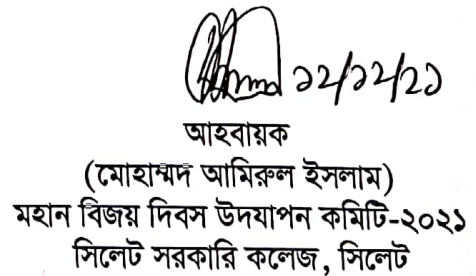 ১২/১২/২১
আহবায়ক
(মোহাম্মদ আমিরুল ইসলাম)
মহান বিজয় দিবস উদযাপন কমিটি-২০২১
সিলেট সরকারি কলেজ, সিলেট